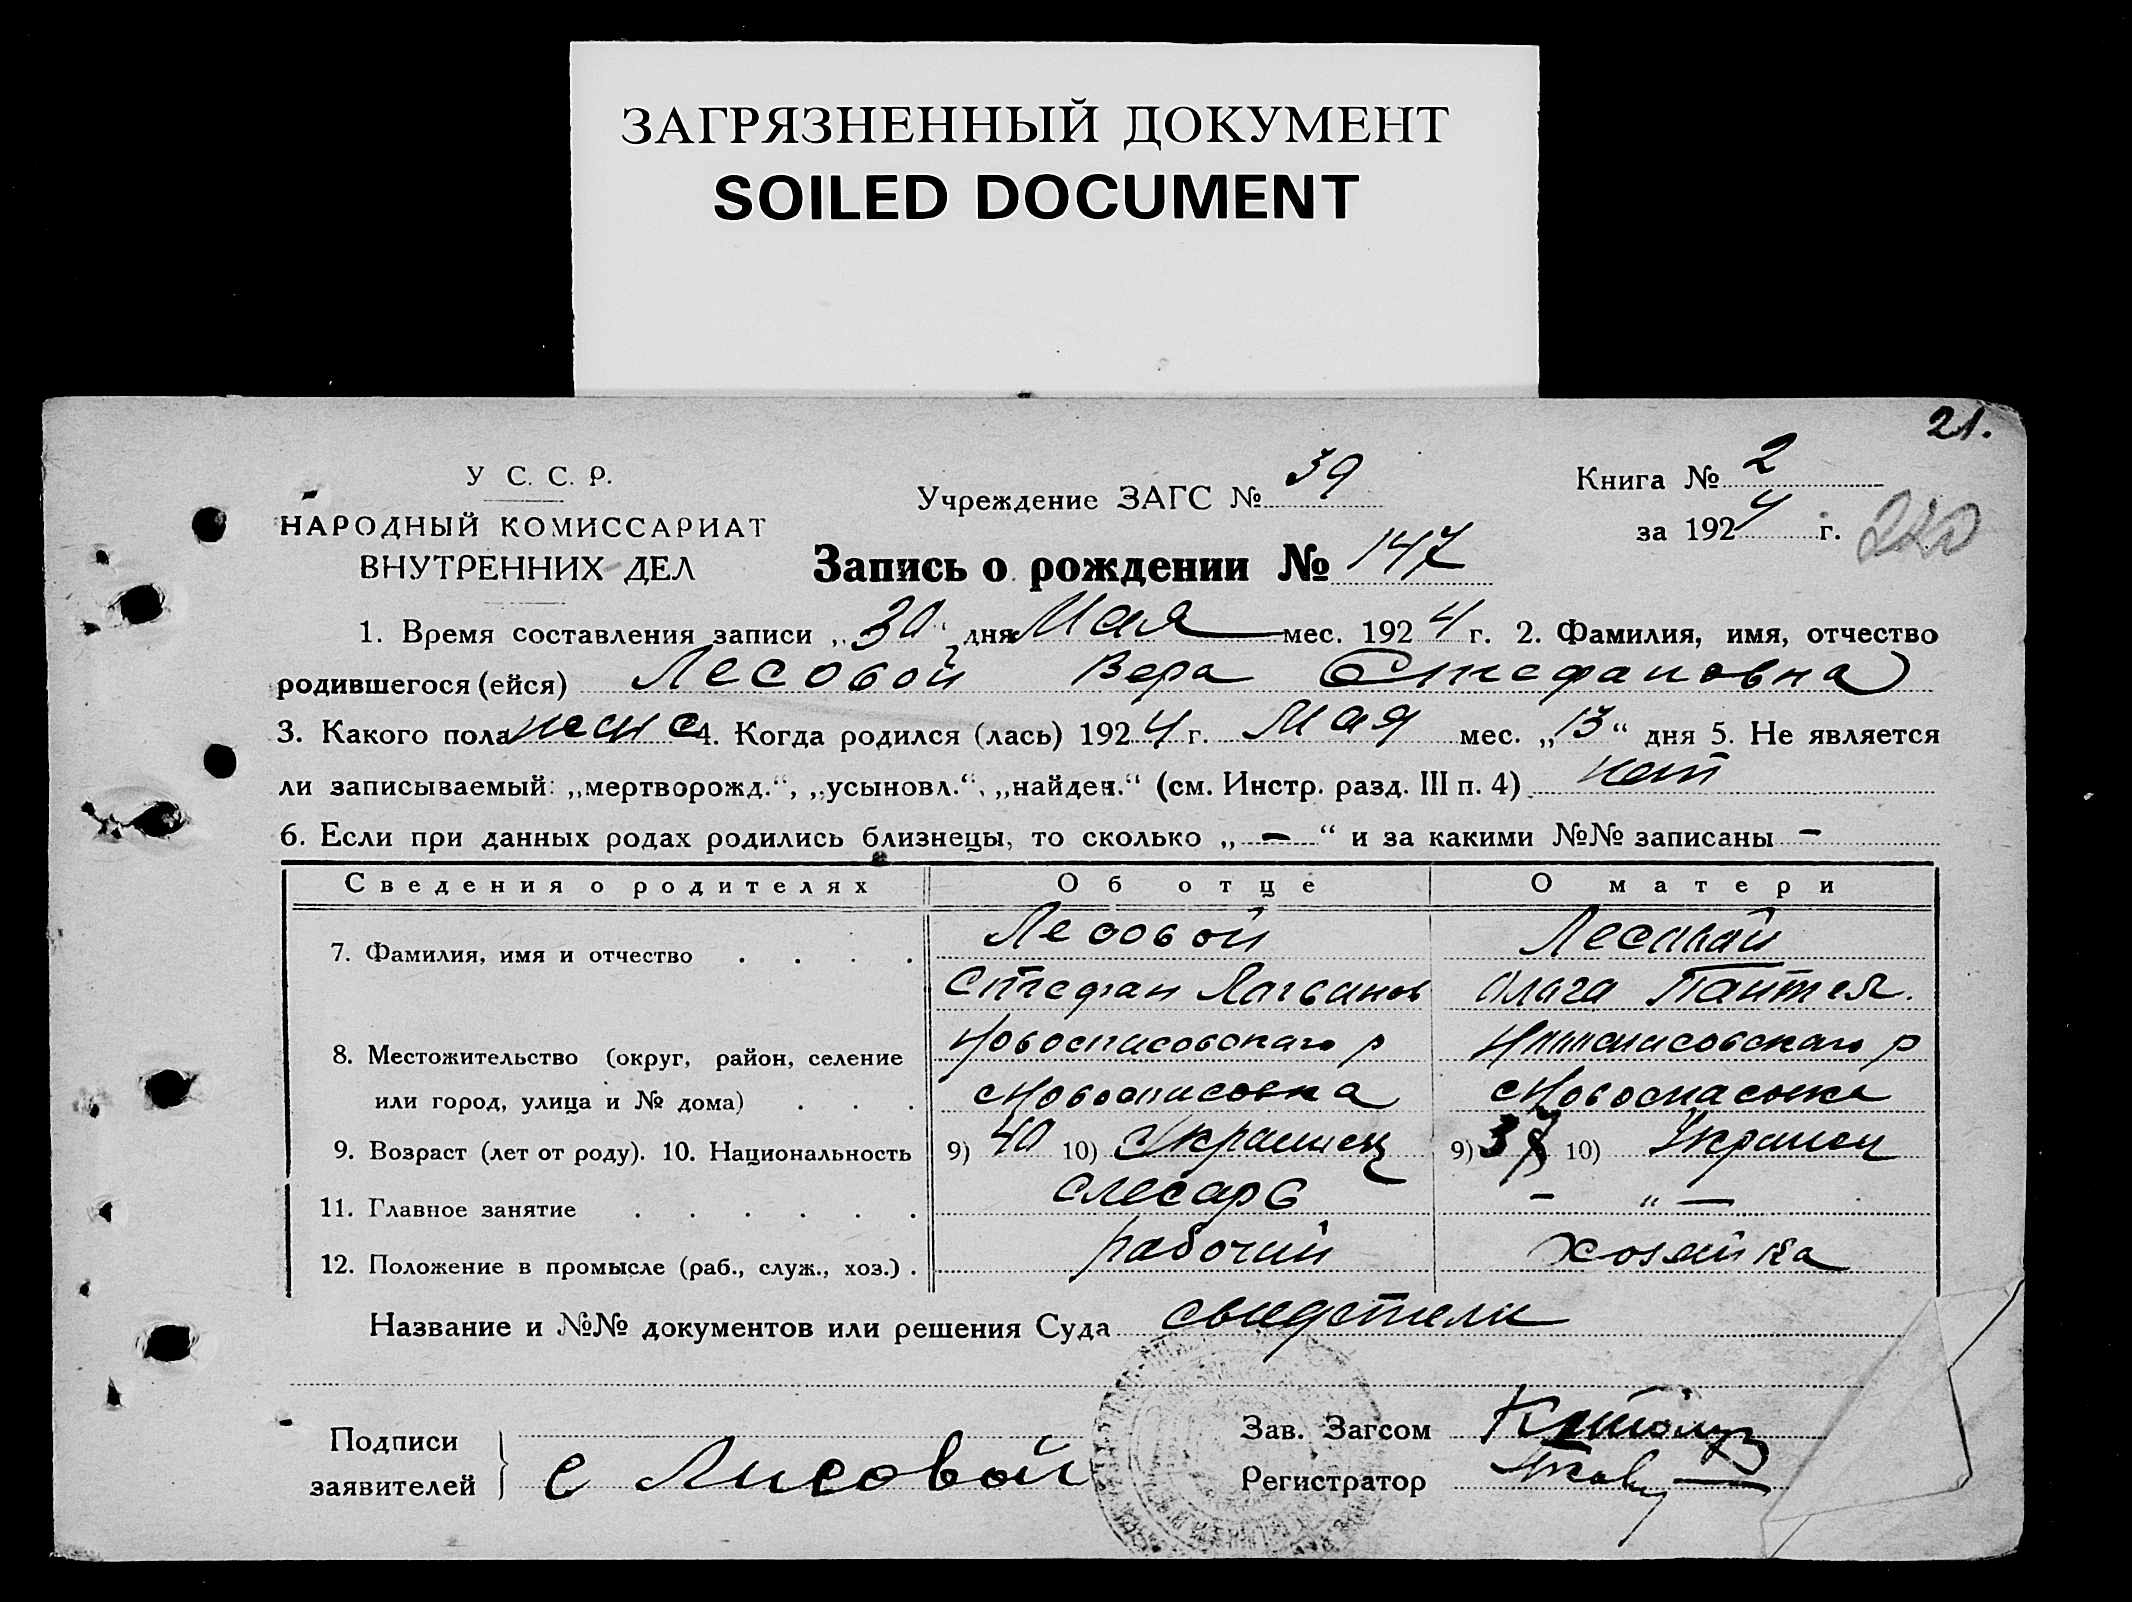 ЗАГРЯЗНЕННЫЙ ДОКУМЕНТ
SOILED DOCUMENT
21.
У С. С. Р.
НАРОДНЫЙ КОМИССАРИАТ
ВНУТРЕННИХ ДЕЛ
Учреждение ЗАГС № 39
Книга № 2
за 1924 г.
Запись о рождении № 147
1. Время составления записи „30“ дня Мая мес. 1924 г. 2. Фамилия, имя, отчество
родившегося (ейся) Лесовой Вера Стефановна
3. Какого пола 4. Когда родился (лась) 1924 г. Мая мес. „13“ дня 5. Не является
ли записываемый: „мертворожд.“, „усыновл.“, „найден.“ (см. Инстр. разд. III п. 4) нет
6. Если при данных родах родились близнецы, то сколько „ — “ и за какими №№ записаны —
Сведения о родителях Об отце О матери
7. Фамилия, имя и отчество . . . . Лесовой Лесовой
Стефан Ольга Пантел.
8. Местожительство (округ, район, селение Новоспасовского р р
или город, улица и № дома) . . . с Новоспасовка с Новоспасовка
9. Возраст (лет от роду). 10. Национальность 9) 40 10) Украинец 9) 10) Украин
11. Главное занятие . . . . . . слесарь — „ —
12. Положение в промысле (раб., служ., хоз.) . рабочий хозяйка
Название и №№ документов или решения Суда свидетели
Подписи
заявителей
С Лисовой
Зав. Загсом
Регистратор